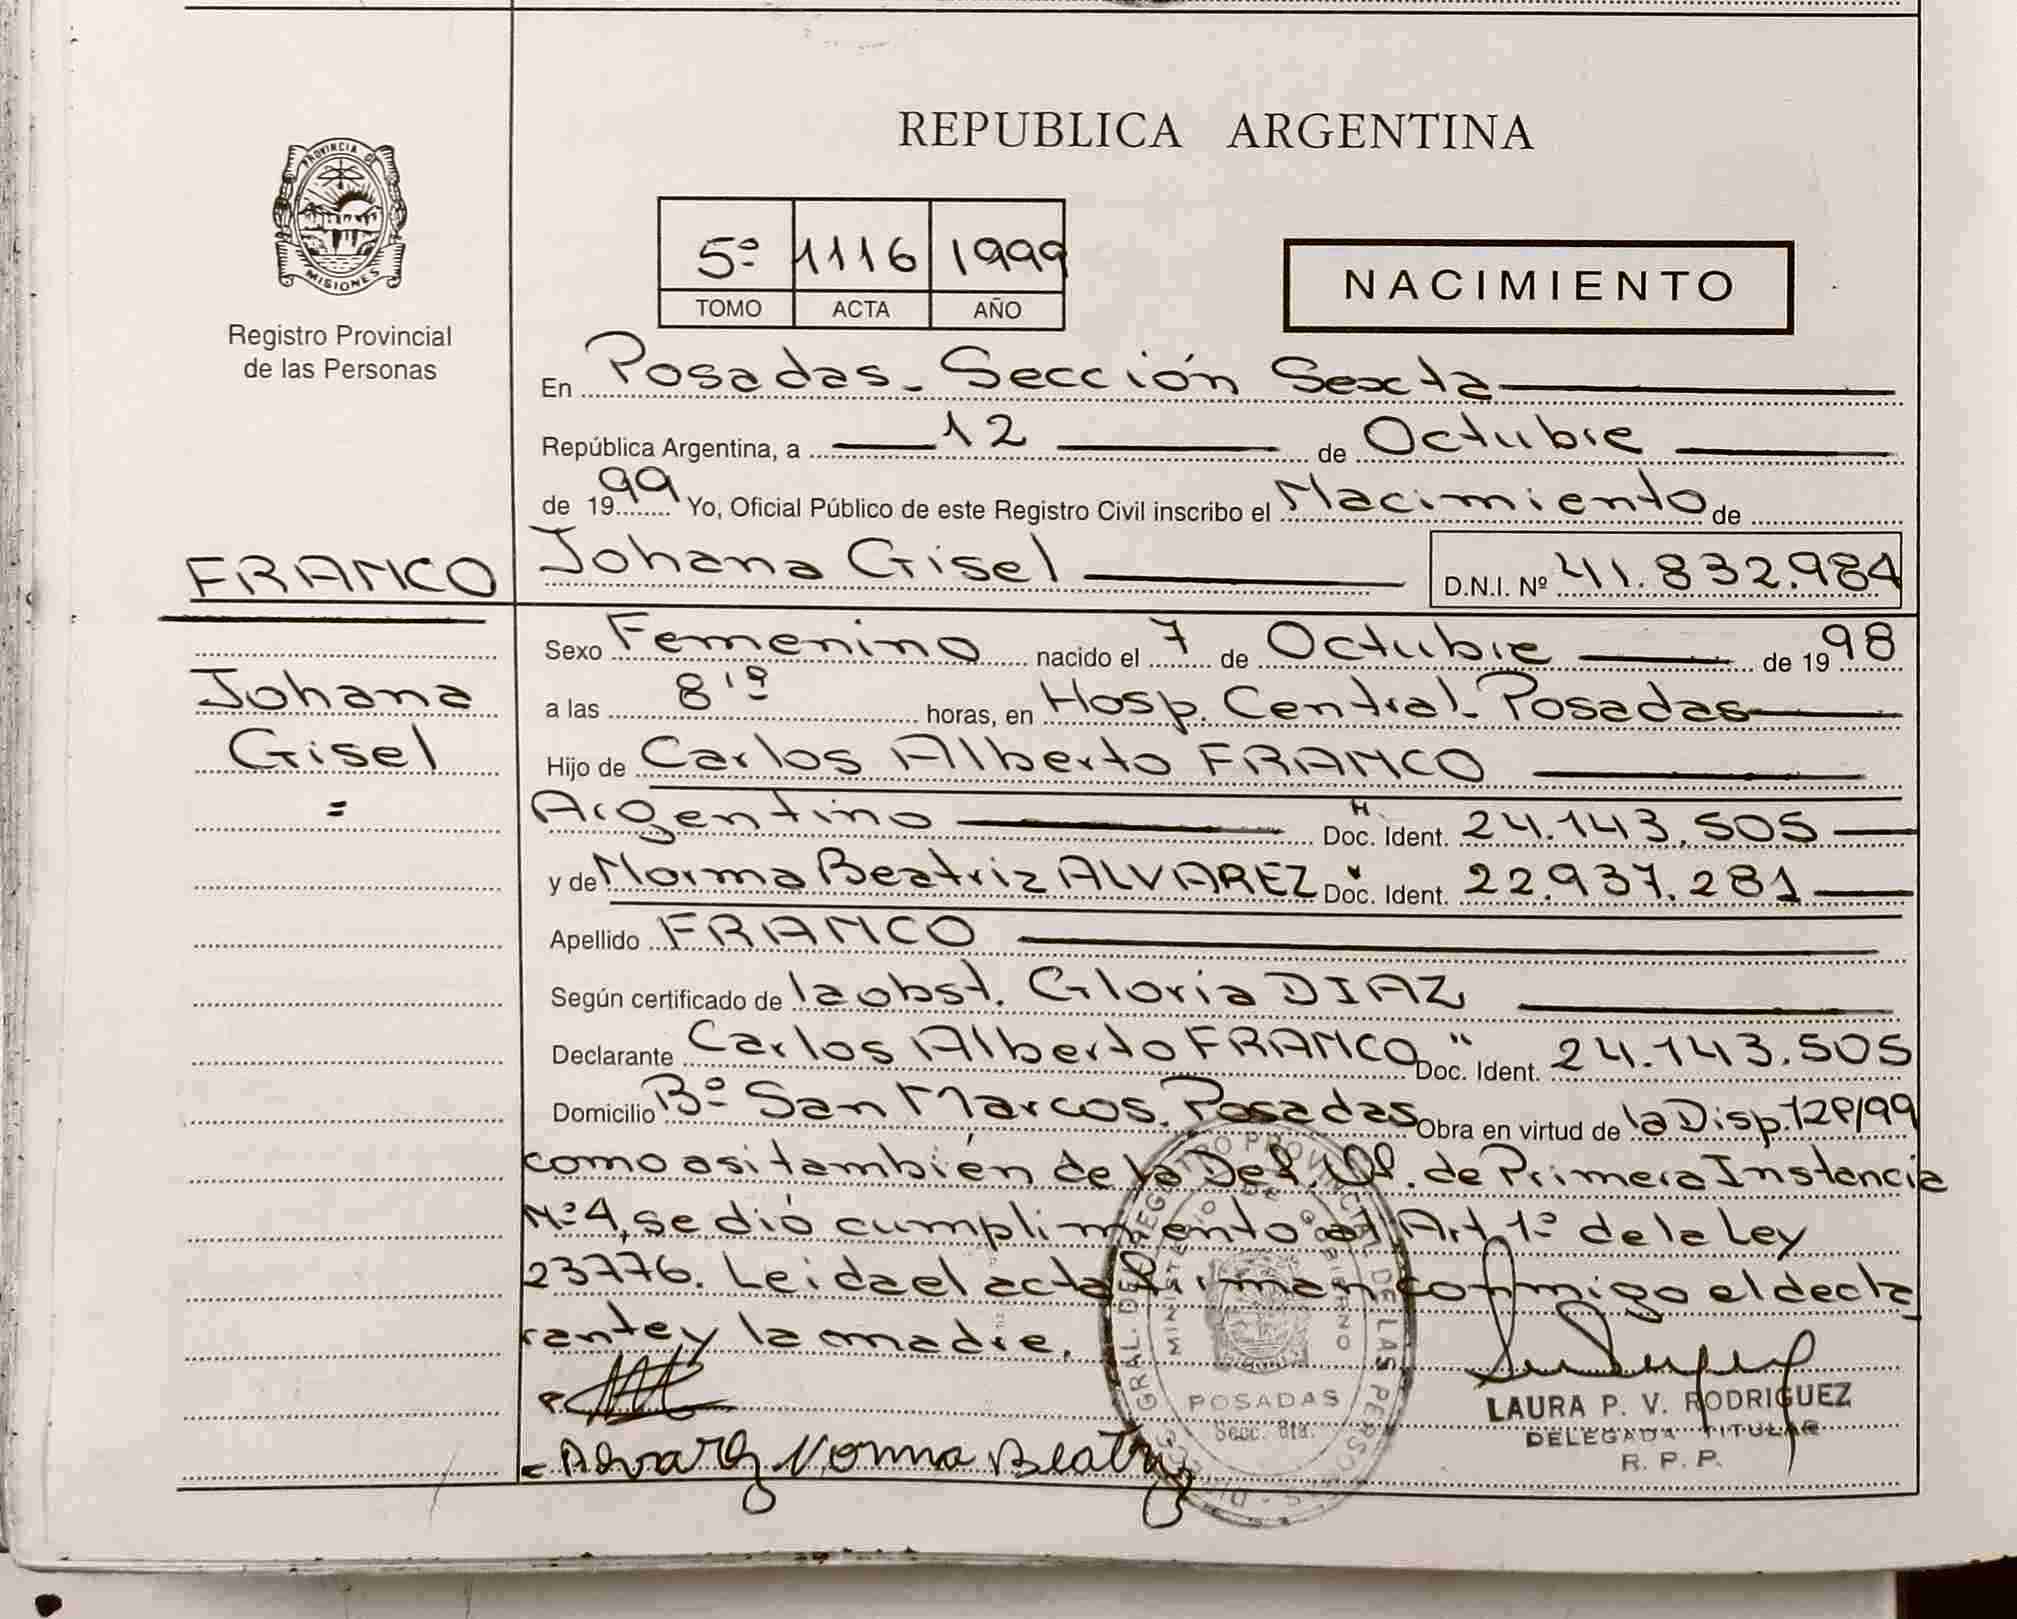 REPUBLICA ARGENTINA
PROVINCIA DE
MISIONES
Registro Provincial
de las Personas
5º 1116 1999
TOMO ACTA AÑO
NACIMIENTO
En Posadas - Sección Sexta
República Argentina, a 12 de Octubre
de 1999 Yo, Oficial Público de este Registro Civil inscribo el Nacimiento de
FRANCO Johana Gisel D.N.I. Nº 41.832.984
Sexo Femenino nacido el 7 de Octubre de 1998
Johana
a las 8 horas, en Hosp. Central - Posadas
Gisel
Hijo de Carlos Alberto FRANCO
=
Argentino Doc. Ident. 24.143.505
y de Norma Beatriz ALVAREZ Doc. Ident. 22.937.281
Apellido FRANCO
Según certificado de la obst. Gloria DIAZ
Declarante Carlos Alberto FRANCO Doc. Ident. " 24.143.505
Domicilio Bº San Marcos. Posadas Obra en virtud de la Disp. /99
como asi también de la de Primera Instancia
Nº 4, se dió cumplimiento al Art. 1º de la Ley
23776. Leida el acta firman conmigo el decla
rante y la madre.
Alvarez Norma Beatriz
POSADAS
Secc. 6ta.
LAURA P. V. RODRIGUEZ
DELEGADA TITULAR
R. P. P.